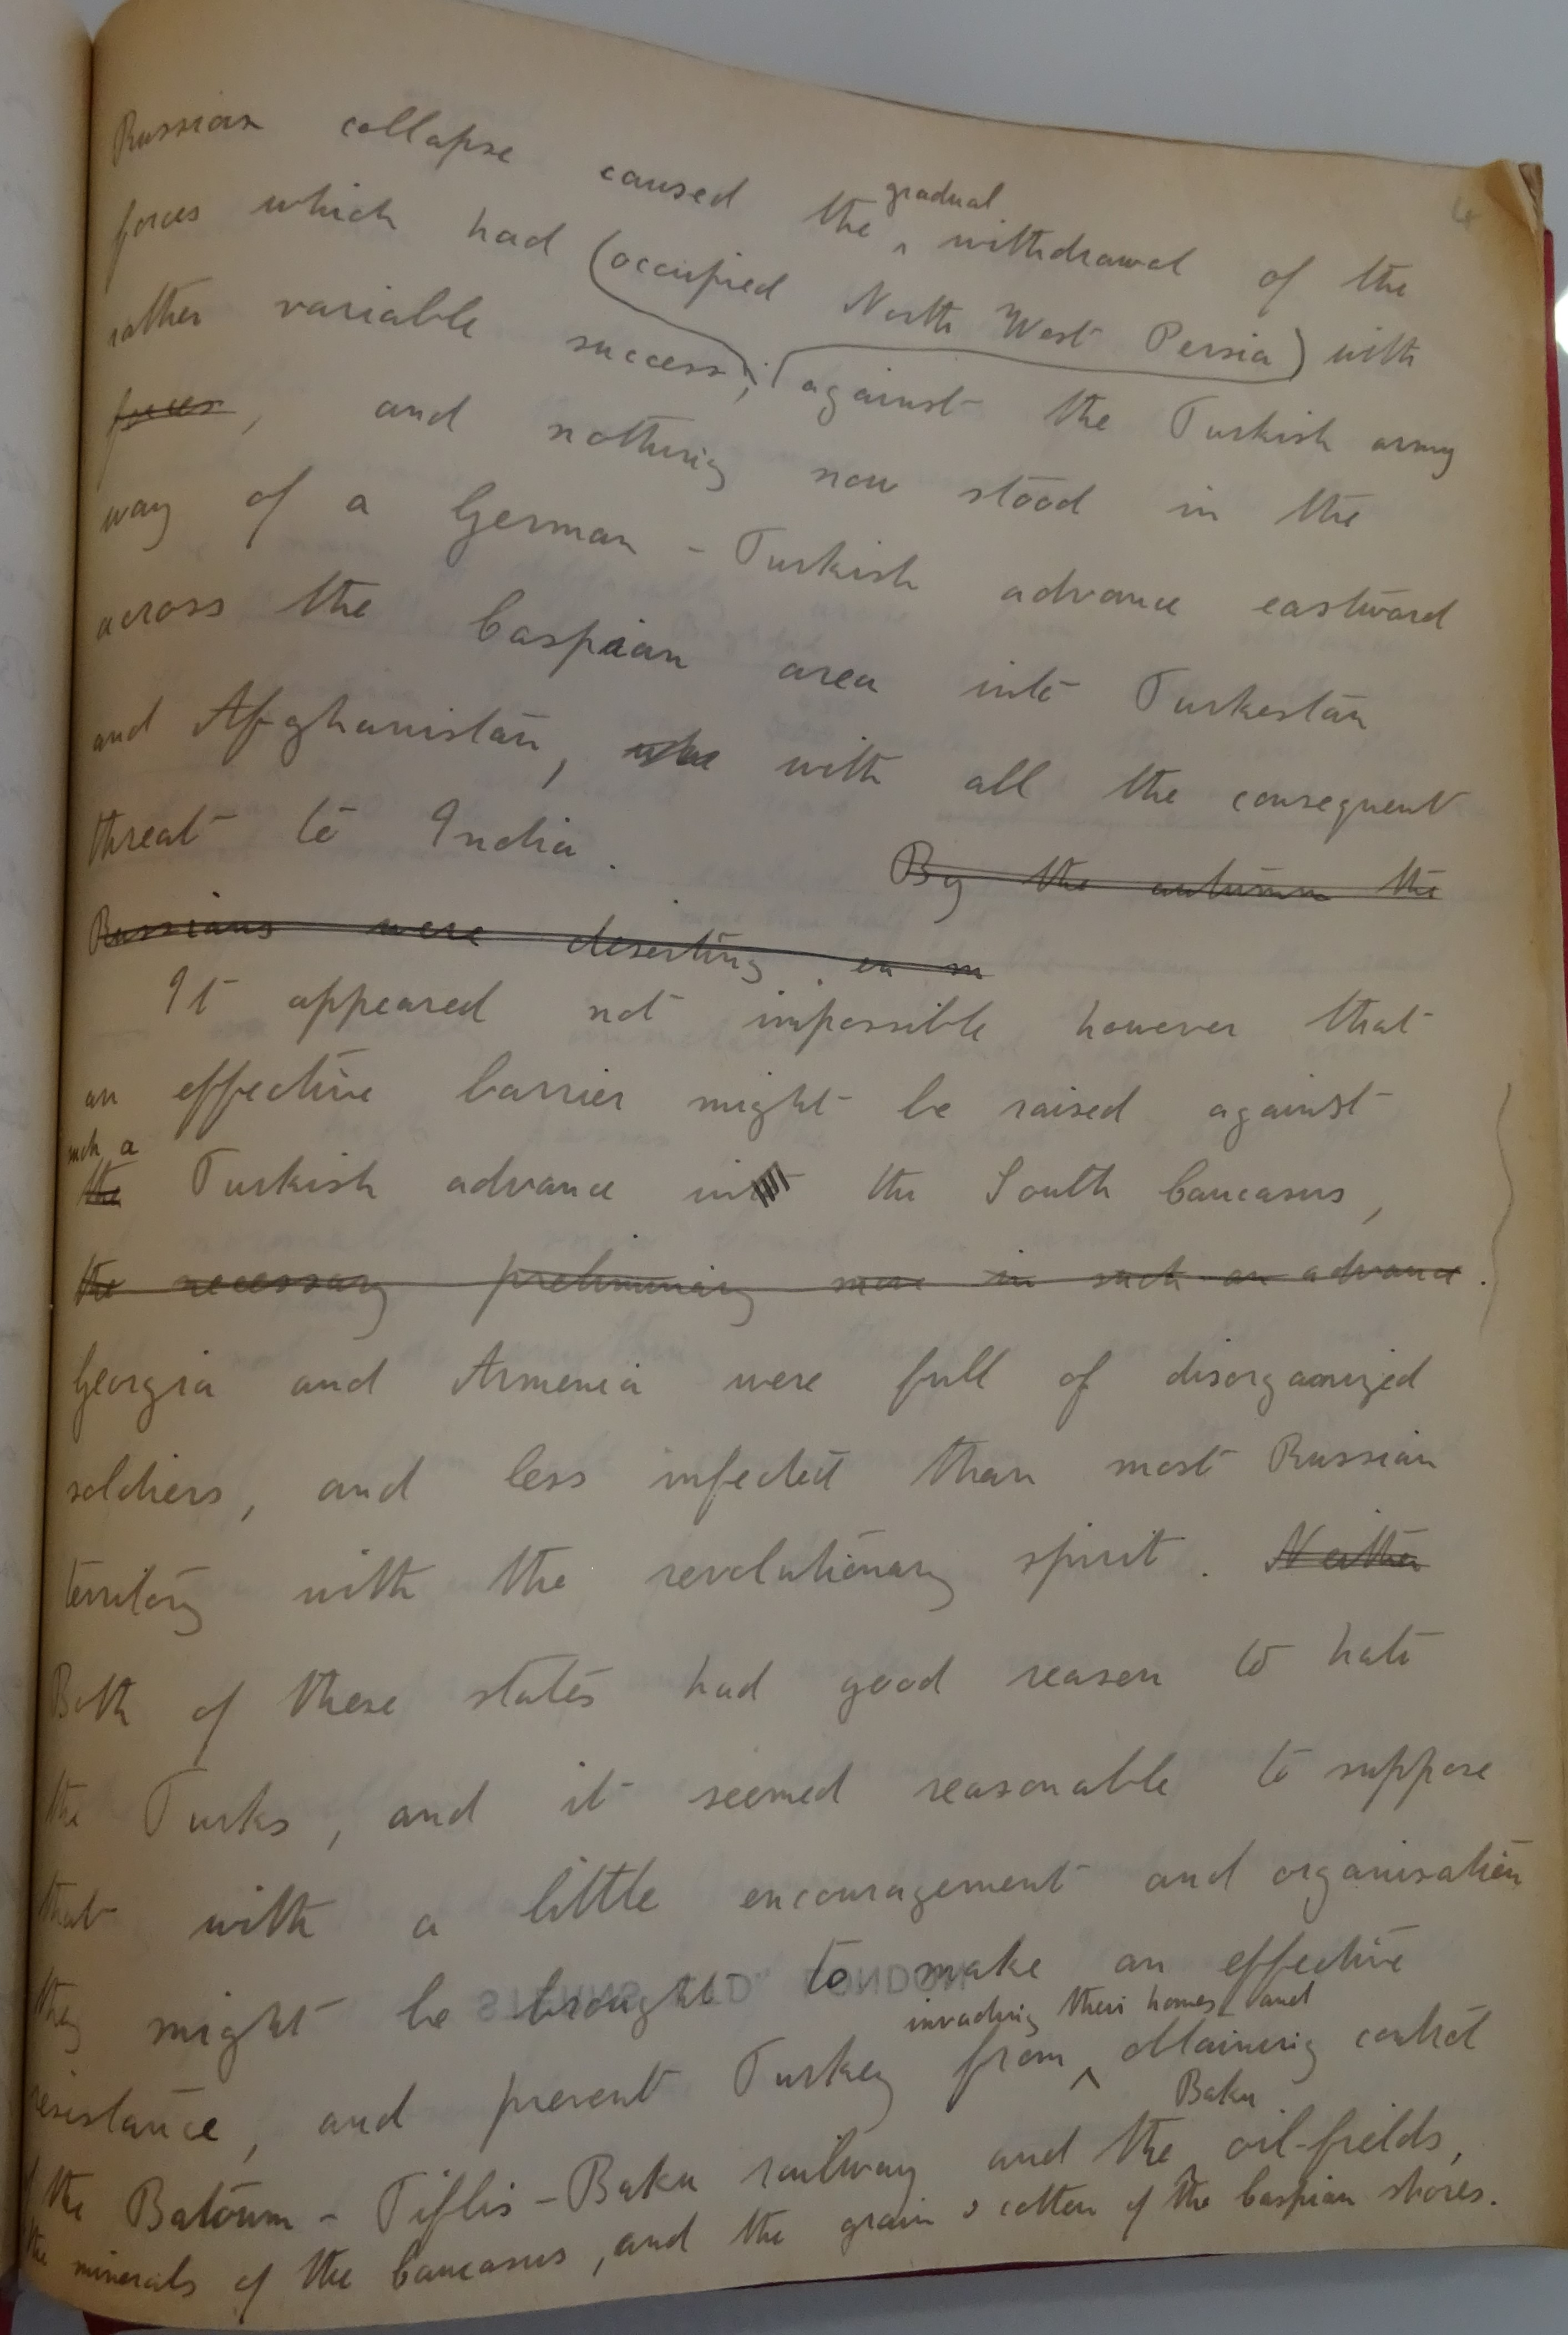 4
Russian collapse caused the gradual withdrawal of the
forces which had (occupied North West Persia) with
rather variable success, against the Turkish army
forces, and nothing now stood in the
way of a German - Turkish advance eastward
across the Caspian area into Turkestan
and Afghanistan, with all the consequent
threat to India. By the autumn the
Russians were deserting en m
It appeared not impossible however that
an effective barrier might be raised against
such a
the Turkish advance in the South Caucasus,
the necessary preliminary move in such an advance.
Georgia and Armenia were full of disorganized
soldiers, and less infected than most Russian
territory with the revolutionary spirit. Neither
Both of these states had good reason to hate
the Turks, and it seemed reasonable to suppose
that with a little encouragement and organisation
they might be brought to make an effective
invading their homes and
resistance, and prevent Turkey from obtaining control
Baku
of the Batoum - Tiflis - Baku railway and the oil-fields,
the minerals of the Caucasus, and the grain & cotton of the Caspian shores.